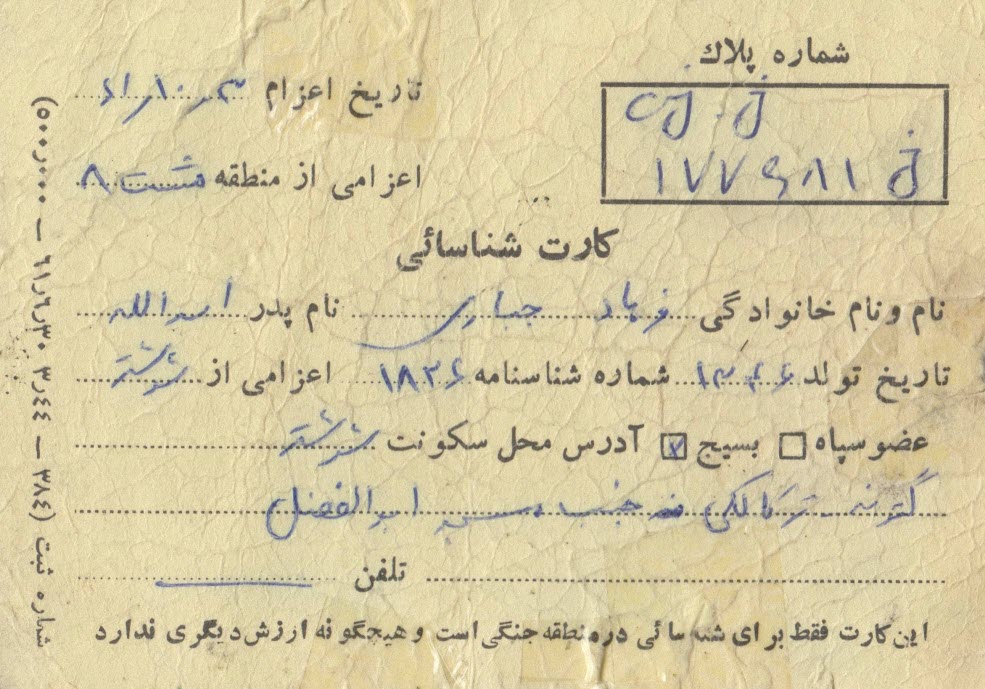 شماره پلاك
۱۷۷۶۸۱
تاریخ اعزام
اعزامی از منطقه هشت ۸
کارت شناسائی
نام و نام خانوادگی فرهاد جباری نام پدر اسدالله
تاریخ تولد ۱۳۴۶ شماره شناسنامه ۱۸۳۶ اعزامی از شوشتر
عضو سپاه □ بسیج ☑ آدرس محل سکونت شوشتر
گتوند ترکالکی جنب مسجد ابوالفضل
تلفن
این کارت فقط برای شناسائی در منطقه جنگی است و هیچگونه ارزش دیگری ندارد
شماره ثبت (۳۸٤ — ۳ر٤٤ ۹۱ر٦ر۳۰ — ۵۰۰ر۰۰۰)